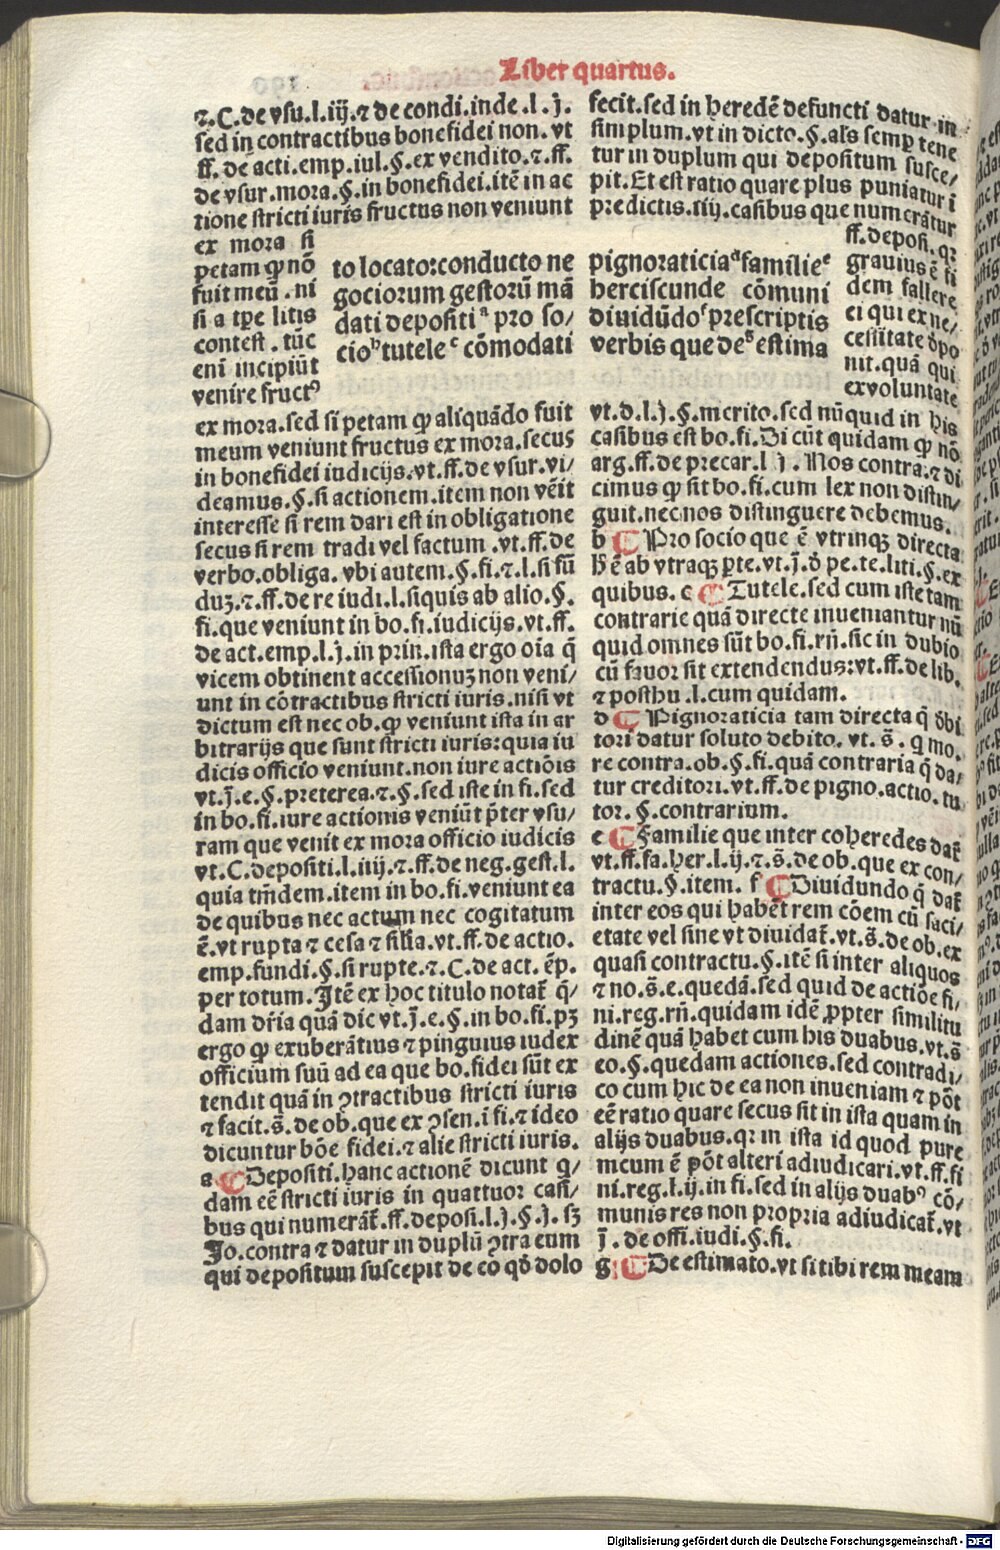 Liber quartus.
⁊.C.de vsu.l.iij.⁊ de condi.inde.l.j.
sed in contractibus bonefidei non.vt
ff.de acti.emp.iul.§.ex vendito.⁊.ff.
de vsur.mora.§.in bonefidei.itē in ac
tione stricti iuris fructus non veniunt
ex mora si
petam ꝙ nō
fuit meū.ni
si a tpe litis
contest.tūc
enī incipiūt
venire fructꝰ
ex mora.sed si petam ꝙ aliquādo fuit
meum veniunt fructus ex mora.secus
in bonefidei iudicijs.vt.ff.de vsur.vi/
deamus.§.si actionem.item non vēit
interesse si rem dari est in obligatione
secus si rem tradi vel factum.vt.ff.de
verbo.obliga.vbi autem.§.fi.⁊.l.si fū
duꝫ.⁊.ff.de re iudi.l.siquis ab alio.§.
fi.que veniunt in bo.fi.iudicijs.vt.ff.
de act.emp.l.j.in prin.ista ergo oīa q̄
vicem obtinent accessionuꝫ non veni/
unt in cōtractibus stricti iuris.nisi vt
dictum est nec ob.ꝙ veniunt ista in ar
bitrarijs que sunt stricti iuris:quia iu
dicis officio veniunt.non iure actiōis
vt.j̄.e.§.preterea.⁊.§.sed iste in fi.sed
in bo.fi.iure actionis veniūt p̄ter vsu/
ram que venit ex mora officio iudicis
vt.C.depositi.l.iiij.⁊.ff.de neg.gest.l.
quia tm̄dem.item in bo.fi.veniunt ea
de quibus nec actum nec cogitatum
ē.vt rupta ⁊ cesa ⁊ silia.vt.ff.de actio.
emp.fundi.§.si rupte.⁊.C.de act.ēp.
per totum.Itē ex hoc titulo notat̄ q̄/
dam dr̄ia quā dic vt.j̄.e.§.in bo.fi.pꝫ
ergo ꝙ exuberātius ⁊ pinguius iudex
officium suū ad ea que bo.fidei sūt ex
tendit quā in ꝯtractibus stricti iuris
⁊ facit.s̄.de ob.que ex ꝯsen.ī fi.⁊ ideo
dicuntur bōe fidei.⁊ alie stricti iuris.
a ¶ Depositi.hanc actionē dicunt q̄/
dam eē stricti iuris in quattuor casi/
bus qui numerāt̄.ff.deposi.l.j.§.j.sꝫ
Jo.contra ⁊ datur in duplū ꝯtra eum
qui depositum suscepit de eo qd̄ dolo
to locato:conducto ne
gociorum gestorū mā
dati depositiᵃ pro so/
cioᵇ tuteleᶜ cōmodati
fecit.sed in heredē defuncti datur in
simplum.vt in dicto.§.als semp̱ tene
tur in duplum qui depositum susce/
pit.Et est ratio quare plus puniatur ī
predictis.iiij.casibus que numerātur
ff.deposi.qꝛ
grauius ē fi
dem fallere
ei qui ex ne/
cessitate d̄po
nit.quā qui
ex voluntate
pignoraticiaᵈ familieᵉ
herciscunde cōmuni
diuidūdoᶠ prescriptis
verbis que deᵍ estima
vt.d.l.j.§.merito.sed nūquid in his
casibus est bo.fi.Di cūt quidam ꝙ nō
arg.ff.de precar.l j.Nos contra.⁊ di
cimus ꝙ sit bo.fi.cum lex non distin/
guit.nec nos distinguere debemus.
b ¶ Pro socio que ē vtrinqꝫ directa
h̄ē ab vtraqꝫ p̱te.vt.j̄.d̄ pe.te.liti.§.ex
quibus. c ¶ Tutele.sed cum iste tam
contrarie quā directe inueniantur nū
quid omnes sūt bo.fi.rn̄.sic in dubio
cū fauor sit extendendus:vt.ff.de lib.
⁊ posthu.l.cum quidam.
d ¶ Pignoraticia tam directa q̄ d̄bi
tori datur soluto debito.vt.s̄.q̄ mo.
re contra.ob.§.fi.quā contraria q̄ da/
tur creditori.vt.ff.de pigno.actio.tu
tor.§.contrarium.
e ¶ Familie que inter coheredes dat̄
vt.ff.fa.her.l.ij.⁊.s̄.de ob.que ex con/
tractu.§.item. f ¶ Diuidundo q̄ dat̄
inter eos qui habēt rem cōem cū saci/
etate vel sine vt diuidat̄.vt.s̄.de ob.ex
quasi contractu.§.itē si inter aliquos
⁊ no.s̄.e.quedā.sed quid de actiōe fi/
ni.reg.rn̄.quidam idē ꝓpter similitu
dinē quā habet cum his duabus.vt.s̄
eo.§.quedam actiones.sed contradi/
co cum hic de ea non inueniam ⁊ pōt
eē ratio quare secus sit in ista quam in
alijs duabus.qꝛ in ista id quod pure
meum ē pōt alteri adiudicari.vt.ff.fi
ni.reg.l.ij.in fi.sed in alijs duabꝰ cō/
munis res non propria adiudicat̄.vt
j̄.de offi.iudi.§.fi.
g ¶ De estimato.vt si tibi rem meam
Digitalisierung gefördert durch die Deutsche Forschungsgemeinschaft - DFG